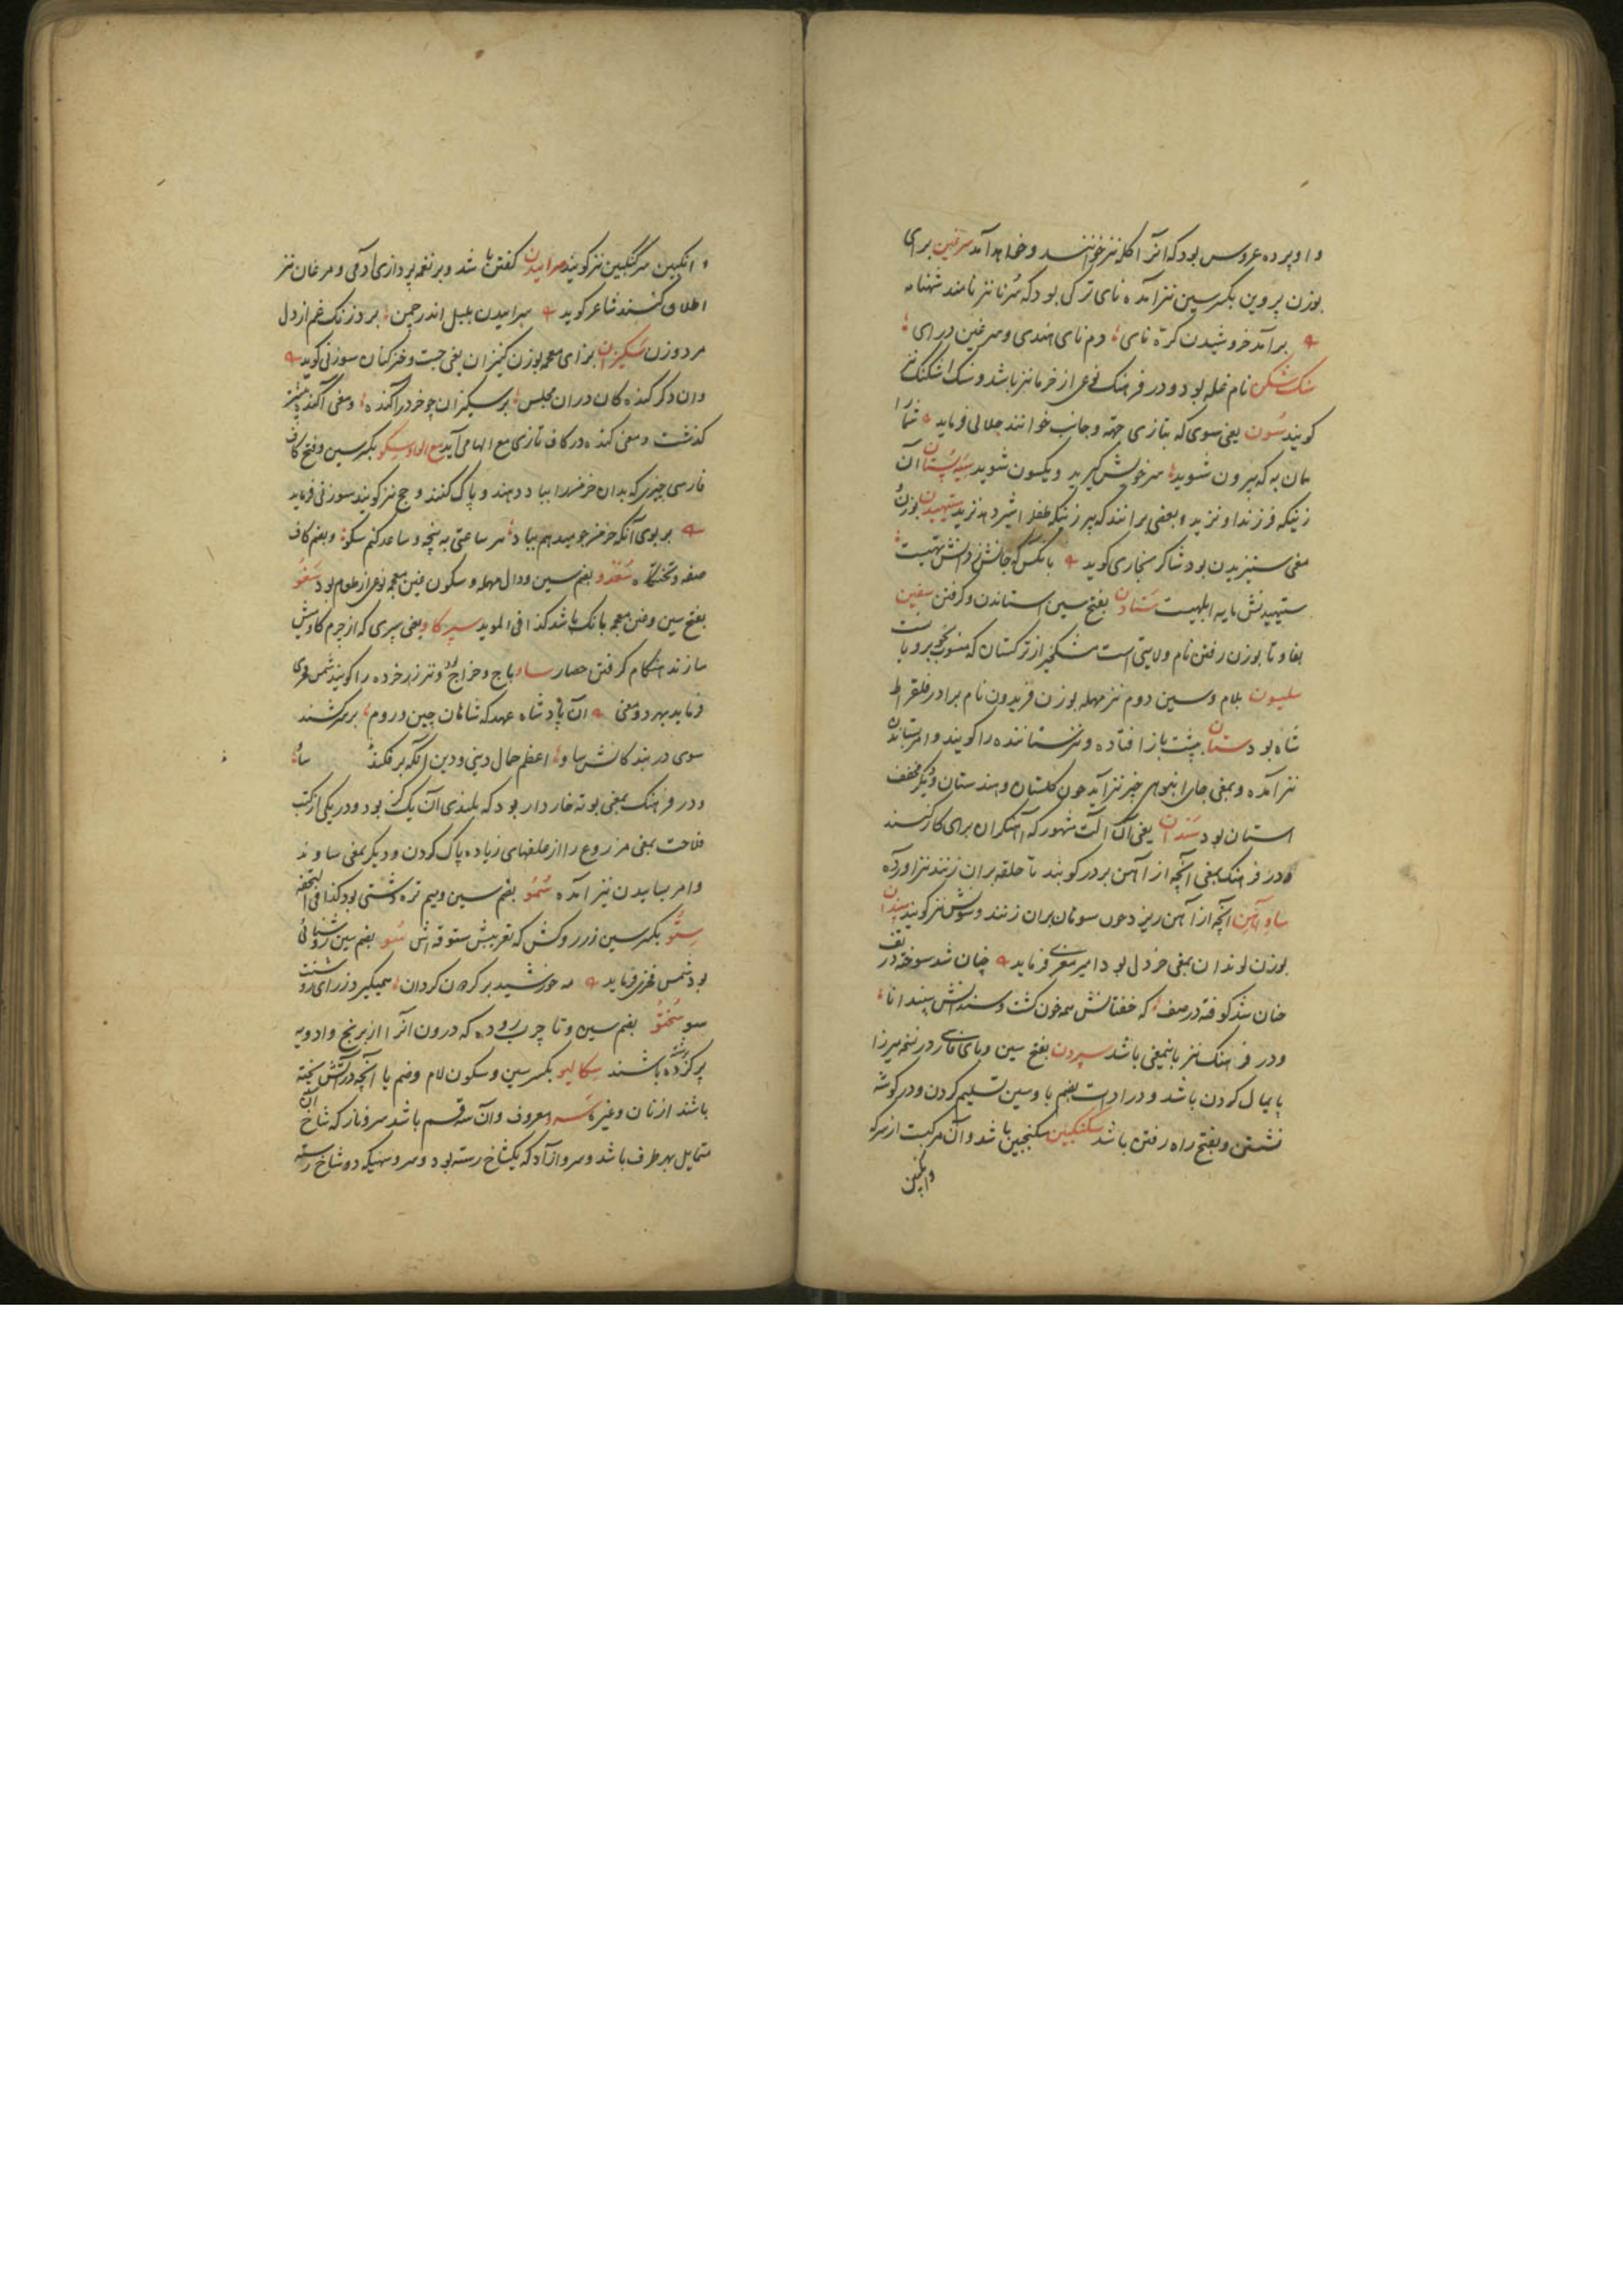 و او پرده عروس بود که انرا کله نیز خوانند و خواهد آمد سرغین برای
بوزن پروین بکسر سین نیز آمده نای ترکی بود که سُرنا نیز نامند شهنامه
بر آمد خروشیدن کره نای دم نای هندی و سرغین درای
سنک شکن نام غله بود و در فرهنک نوعی از خرما نیز باشد و سنک اشکنک نیز
کویند سُون یعنی سوی که بتازی جهة و جانب خوانند جلالی فرماید شما را
همان به که بیرون شوید سر خویش کیرید و یکسون شوید سیه پستان آن
زنیکه فرزند او نزید و بعضی برانند که پیر زنیکه طفل را شیر دهد نزید ستیهیدن بوزن
معنی ستیزیدن بود شاکر بخاری کوید با نکس که جانش ز دانش تهیست
ستیهیدنش مایه ابلهیست ستادن بفتح سین استاندن و کرفتن سفین
بفا و تا بوزن رفتن نام ولایتی است مشکخیز از ترکستان که منسوب بخوبرویانست
سلیسون بلام و سین دوم نیز مهمله بوزن فریدون نام برادر فلقراط
شاه بود ستان بپشت باز افتاده و نیز ستاننده را کویند و امر بستاندن
نیز آمده و بمعنی جای انبوهی چیز نیز آید چون کلستان و هندستان و دیکر مخفف
استان بود سندان یعنی آن آلت مشهور که آهنکران برای کار کنند
و در فرهنک بمعنی آنچه از آهن بر در کوبند تا حلقه بران زنند نیز اورده
ساو آهن آنچه از آهن ریزد چون سوهان بران زنند و سوش نیز کویند سپندان
بوزن لوندان بمعنی خردل بود امیر معزی فرماید چنان شد سوخته در تف
چنان شد کوفته در صف که خفتانش همه خون کشت و سندانش سپندانا
و در فرهنک نیز باینمعنی باشد سپردن بفتح سین و بای فارسی در نسخه میرزا
پایمال کردن باشد و در ادات بضم با و سین تسلیم کردن و در کوشه
نشستن و بفتح راه رفتن باشد سکنکبین سکنجبین باشد و آن مرکبست از سرکه
و انکبین
و انکبین سرکنکبین نیز کویند سراییدن کفتن باشد و بر نغمه پردازی آدمی و مرغان نیز
اطلاق کنند شاعر کوید سراییدن بلبل اندر چمن بزدوز زنک غم از دل
مرد و زن سکیزان بزای معجمه بوزن کنیزان یعنی جست و خیز کنان سوزنی کوید
وان دکر کنده کان دران مجلس بر سکیزان چو خر در آکنده و معنی آکنده پیشتر
کذشت و معنی کنده در کاف تازی مع الها می آید مع الواو سِکو بکسر سین و فتح کاف
فارسی چیزی که بدان خرمنها بباد دهند و پاک کنند و چج نیز کویند سوزنی فرماید
بر بوی آنکه خرمن جو میدهم بباد هر ساعتی به پنجه و ساعد کنم سکو و بضم کاف
صفه و تختکاه سُغدو بضم سین و دال مهمله و سکون غین معجمه نوعی از طعام بود سَغو
بفتح سین و غین معجمه بانک باشد کذا فی الموید سپر کاو یعنی سپری که از چرم کاومیش
سازند هنکام کرفتن حصار ساو باج و خراج بود و نیز زر خرده را کویند شمس فخری
فرماید بهر دو معنی آن پادشاه عهد که شاهان چین و روم بر سر کشند
سوی در بندکانش ساو اعظم جمال دینی و دین آنکه بر فکند ساو
و در فرهنک بمعنی بوته خاردار بود که بلندی آن یک کز بود و در یکی از کتب
فلاحت بمعنی مزروع را از علفهای زیاده پاک کردن و دیکر بمعنی ساوند
و امر بساییدن نیز آمده سُمُو بضم سین و میم تره دشتی بود کذا فی التحفه
سِتُو بکسر سین زر روکش که تعریبش ستوقه اش سُو بضم سین روشنائی
بود شمس فخری فرماید مه خورشید بر کردون کردان همیکیرد ز رای روشنت
سو سُختُو بضم سین و تا چرب روده که درون آنرا از برنج و ادویه
پر کرده باشند سِکالیو بکسر سین و سکون لام و ضم یا آنچه در آتش پخته
باشند از نان و غیره سَرو معروف و آن سه قسم باشد سرو ناز که شاخ آن
متمایل بهر طرف باشد و سرو آزاد که یکشاخ رسته بود و سرو سهی که دو شاخ رسته